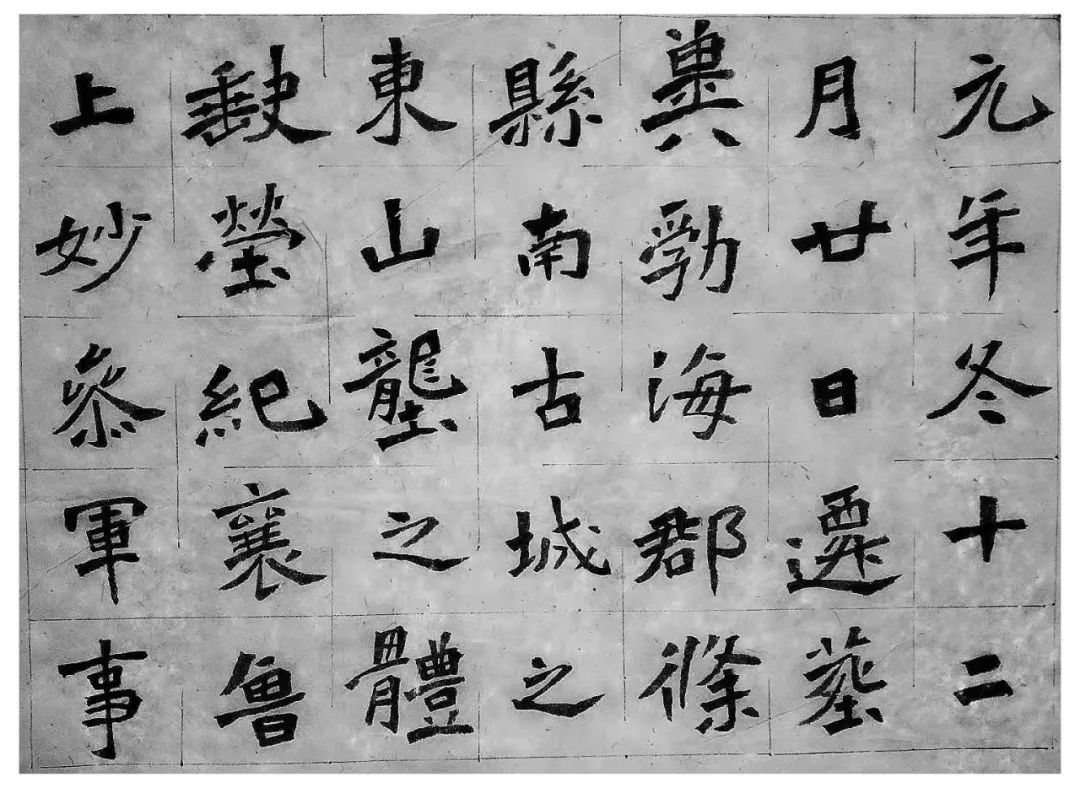 元年冬十二
月廿日遷葬
冀勃海郡條
縣南古城之
東山壟之體
塋紀襄魯
上妙叅軍事